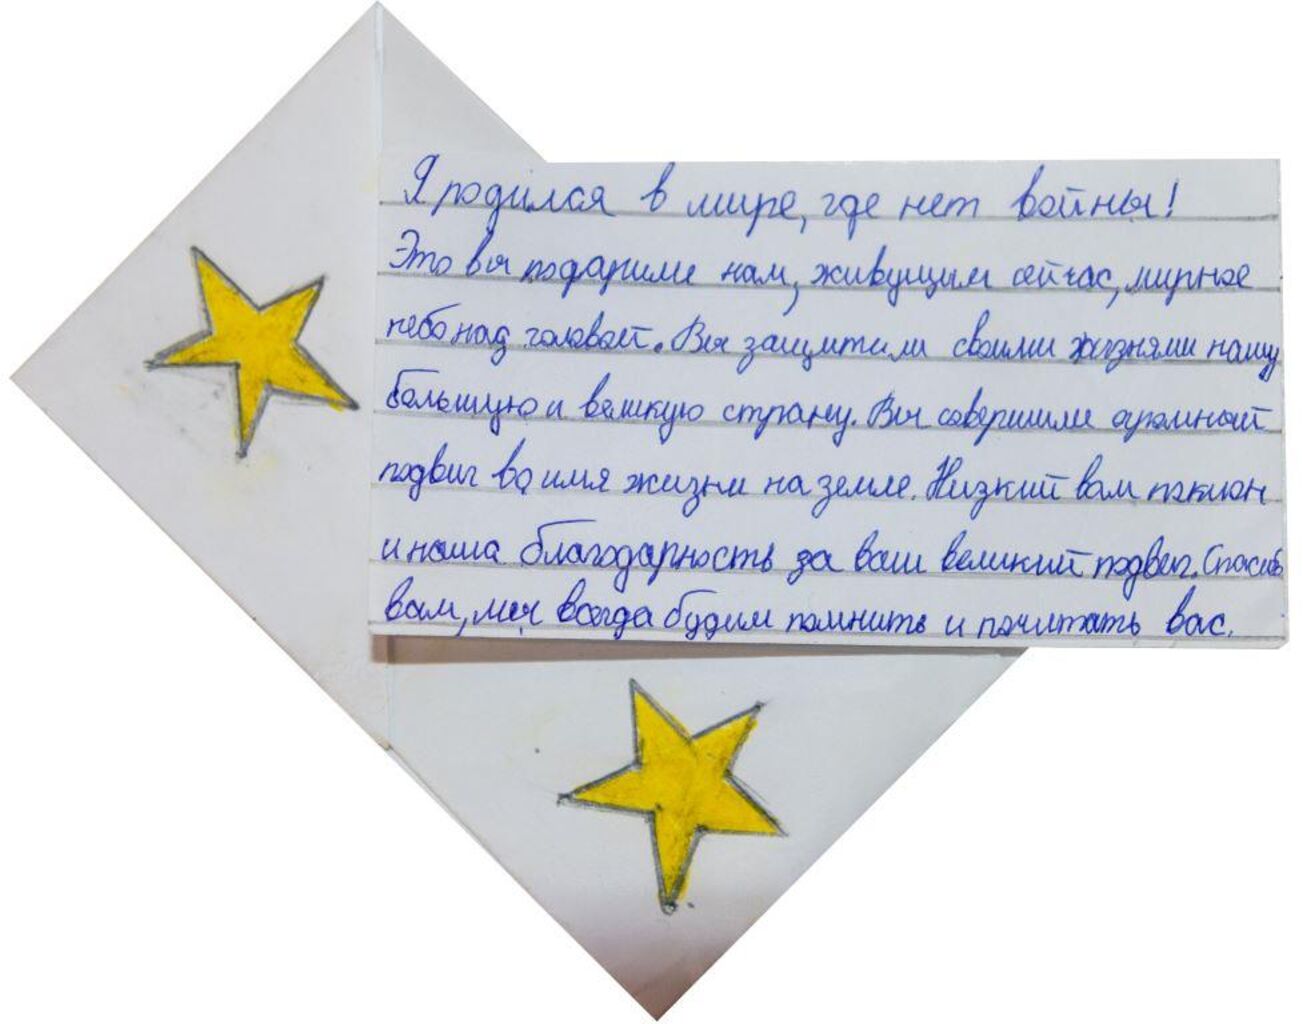 Я родился в мире, где нет войны!
Это вы подарили нам, живущим сейчас, мирное
небо над головой. Вы защитили своими жизнями нашу
большую и великую страну. Вы совершили огромный
подвиг во имя жизни на земле. Низкий вам поклон
и наша благодарность за ваш великий подвиг. Спасибо
вам, мы всегда будим помнить и почитать вас.